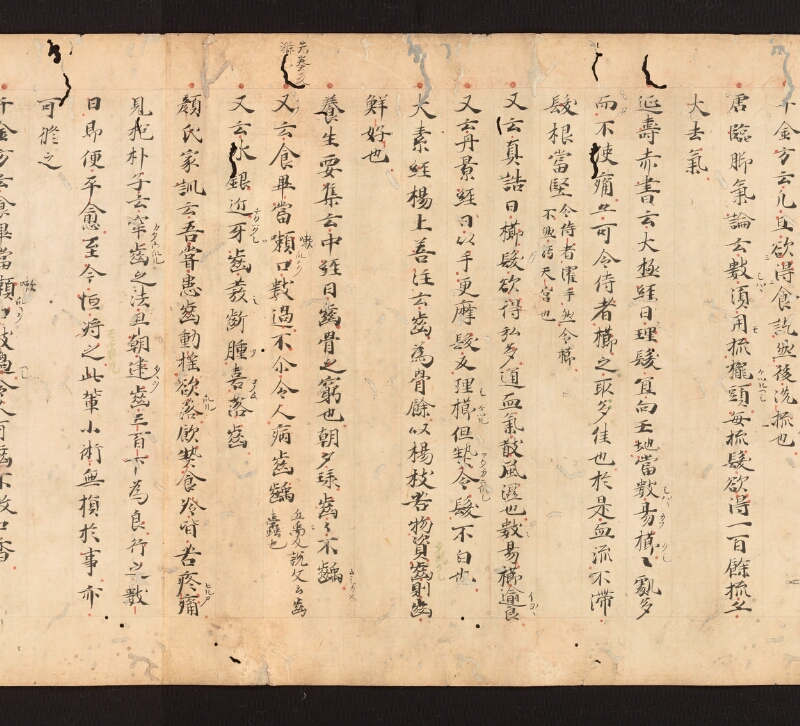 千金方云凡旦欲得食訖然後洗梳也
唐臨脚氣論云數須用梳擺頭每梳髮欲得一百餘梳之
大去氣
延壽赤書云大極經曰理髮宜向王地當數易櫛〻亂多
而不使痛之可令侍者櫛之取多佳也於是血流不滯
髮根當堅 令侍者濯手然令櫛不然汚天宮也
又云真誥曰櫛髮欲得私多過血氣散風濕也數易櫛逾良
又云丹景經曰以手更摩髮及理櫛但熱令髮不白也
大素經楊上善注云齒為骨餘以楊枝若物資齒則齒
鮮好也
養生要集云中經曰齒骨之窮也朝夕琢齒〻不齲
又云食畢當嗽口數過不尒令人病齒齲
又云水銀近牙齒發齗腫喜落齒
顔氏家訓云吾嘗患齒動搖欲落飲熱食冷皆苦疼痛
見抱朴子云牢齒之法旦朝建齒三百下為良行之數
日即便平愈至今恒將之此輩小術無損於事亦
可脩之
千金方云食畢當漱口數過令人牙齒不敗口香